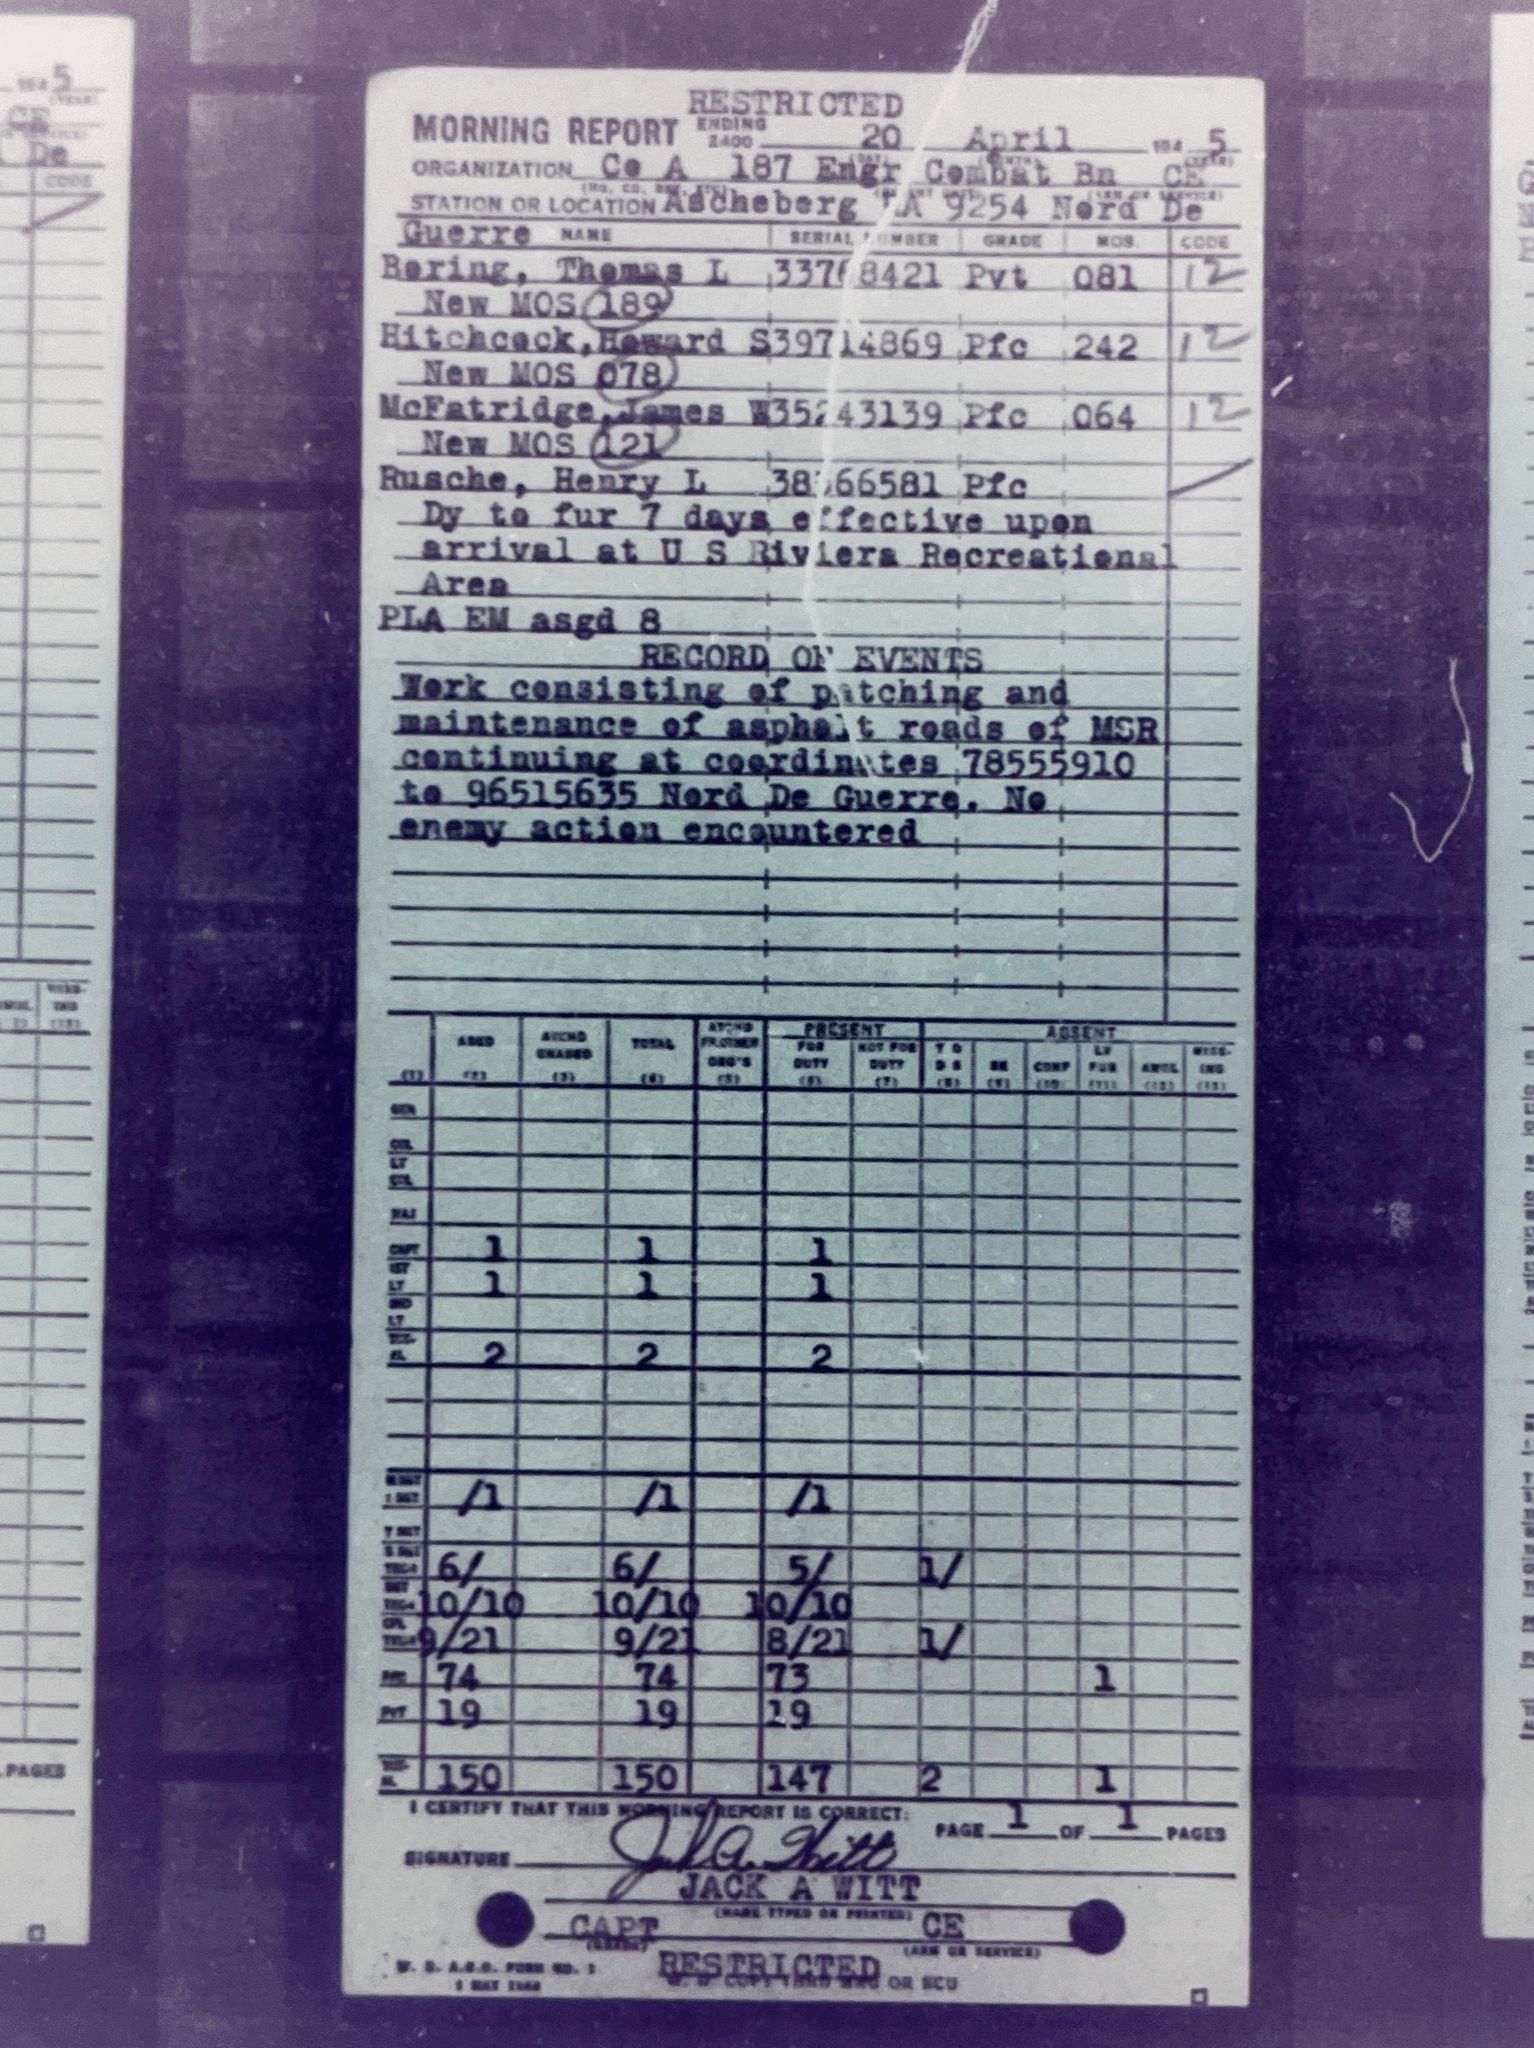 RESTRICTED
MORNING REPORT ENDING 2400 20 April 194 5
ORGANIZATION Co A 187 Engr Combat Bn CE
STATION OR LOCATION Ascheberg 9254 Nord De
Guerre NAME SERIAL NUMBER GRADE MOS. CODE
Boring, Thomas L 8421 Pvt 081 12
New MOS 189
Hitchcock, Howard S 39714869 Pfc 242 12
New MOS 078
McFatridge, James W 35243139 Pfc 064 12
New MOS 121
Rusche, Henry L Pfc
Dy to fur 7 days effective upon
arrival at U S Riviera Recreational
Area
PLA EM asgd 8
RECORD OF EVENTS
Work consisting of patching and
maintenance of asphalt roads of MSR
continuing at coordinates 78555910
to 96515635 Nord De Guerre. No
enemy action encountered
PRESENT ABSENT
ASGD TOTAL FOR DUTY NOT FOR DUTY SK CONF LV FUR AWOL MISSING
(1) (2) (3) (4) (5) (6) (7) (8) (9) (10) (11) (12) (13)
GEN
COL
LT COL
MAJ
CAPT 1 1 1
1ST LT 1 1 1
2ND LT
TOTAL 2 2 2
M SGT 1 SGT /1 /1 /1
T SGT
S SGT TEC 3 6/ 6/ 5/ 1/
SGT TEC 4 10/10 10/10 10/10
CPL TEC 5 9/21 9/21 8/21 1/
PFC 74 74 73 1
PVT 19 19 19
TOTAL 150 150 147 2 1
I CERTIFY THAT THIS MORNING REPORT IS CORRECT:
PAGE 1 OF 1 PAGES
SIGNATURE Jack A. Witt
JACK A WITT
(NAME TYPED OR PRINTED)
CAPT CE
(GRADE) (ARM OR SERVICE)
W. D. A.G.O. FORM NO. 1 RESTRICTED
OR SCU
5
CE
De
CODE
PAGES